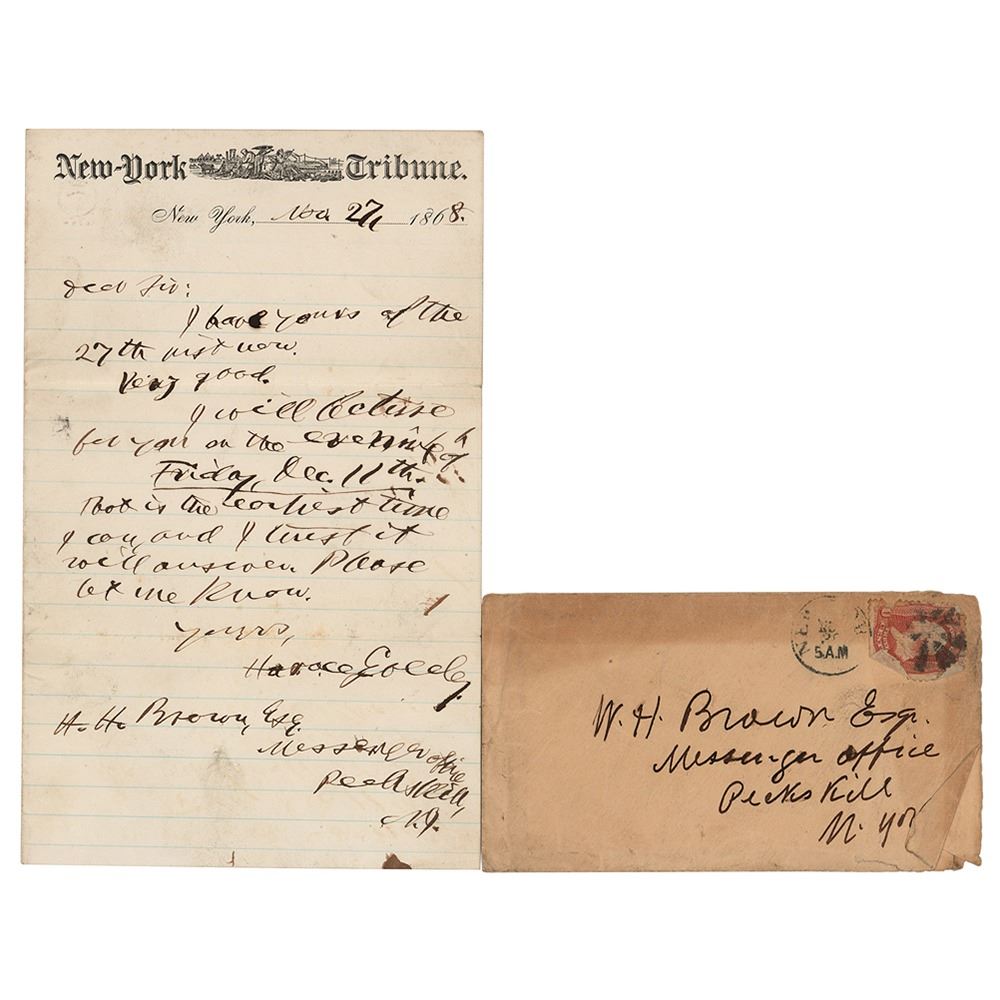 New-York Tribune.
New York, Nov. 27, 1868.
Dear Sir:
I have yours of the
27th inst now.
Very good.
I will lecture
for you on the evening of
Friday, Dec. 11th.
That is the earliest time
I can, and I trust it
will answer. Please
let me know.
Yours,
Horace Greeley
H. H. Brown, Esq.
Messenger office
Peekskill,
N.Y.
5 A.M
W. H. Brown Esq.
Messenger office
Peekskill
N. Yor